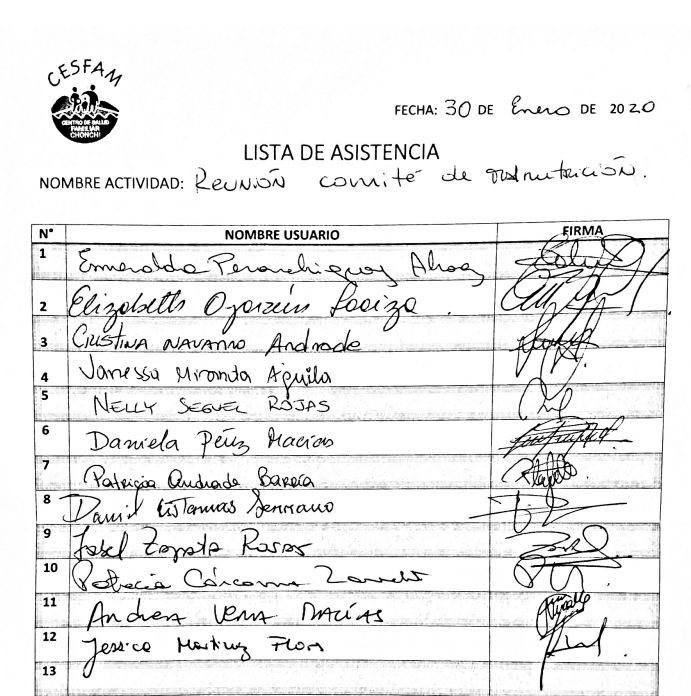 CESFAM
CENTRO DE SALUD
FAMILIAR
CHONCHI
FECHA: 30 DE Enero DE 2020
LISTA DE ASISTENCIA
NOMBRE ACTIVIDAD: Reunión comité de nutrición.
N° NOMBRE USUARIO FIRMA
1 Esmeralda
2 Elizabeth Oyarzún Loaiza
3 CRISTINA NAVARRO Andrade
4 Vanessa Miranda Aguila
5 NELLY SEGUEL ROJAS
6 Daniela Pérez Macias
7 Patricia Andrade Barría
8 Daniel Serrano
9 Isabel Zapata Rosas
10 Patricia Cárcamo
11 Andrea VERA MACÍAS
12 Jessica Martinez Flores
13